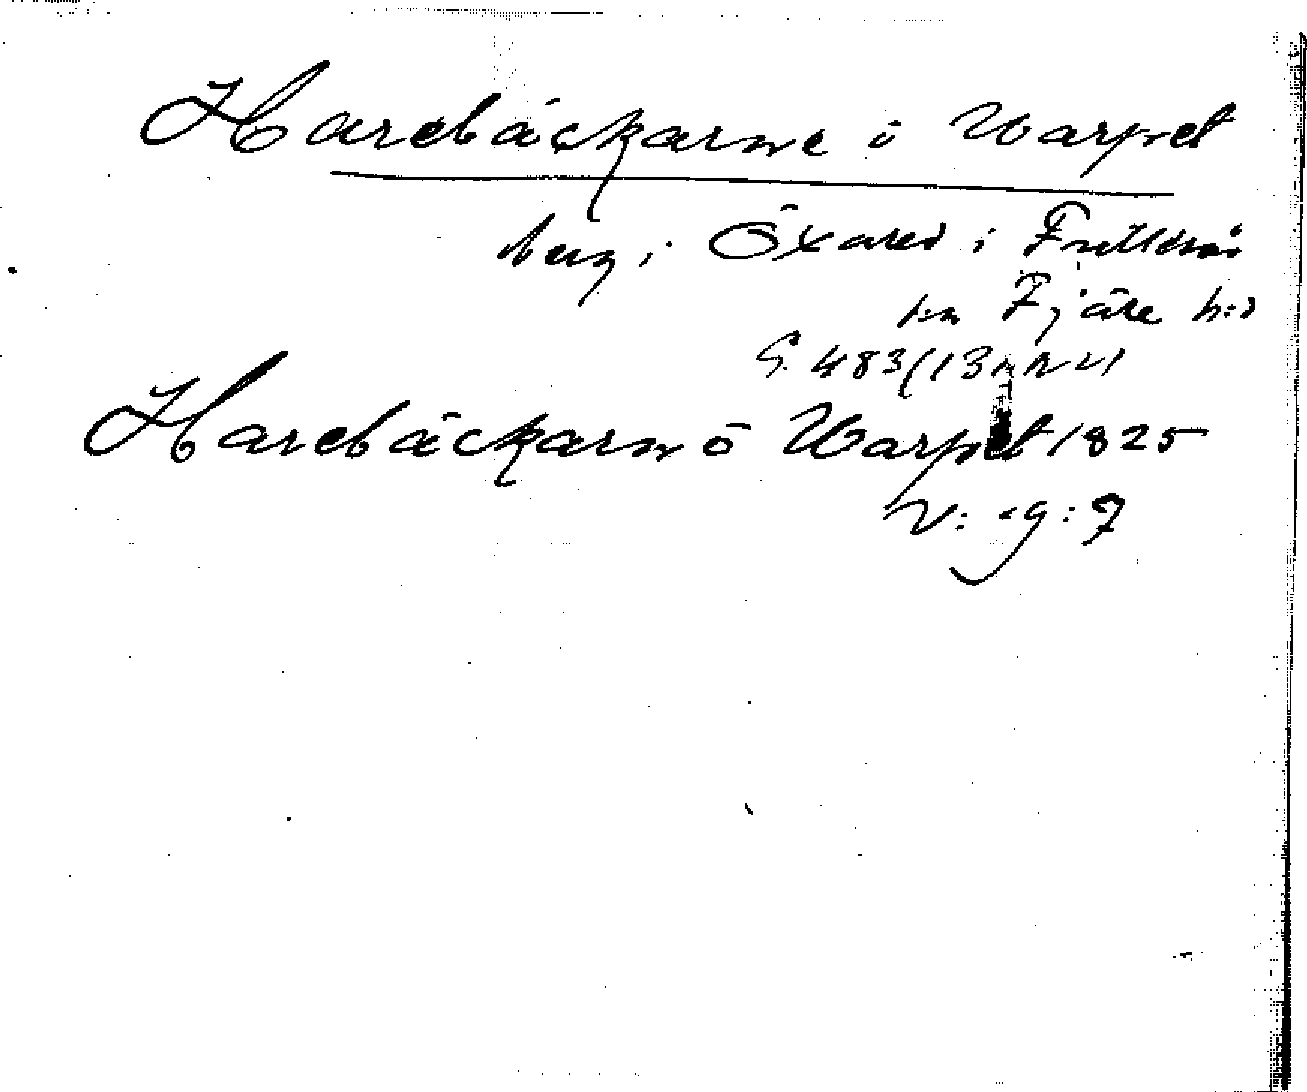 Harebäckarne ö Warpet
berg i Öxared i Frillesås
sn Fjäre h:d
G. 483(13
Harebäckarn ö Warpet 1825
V: g: 7